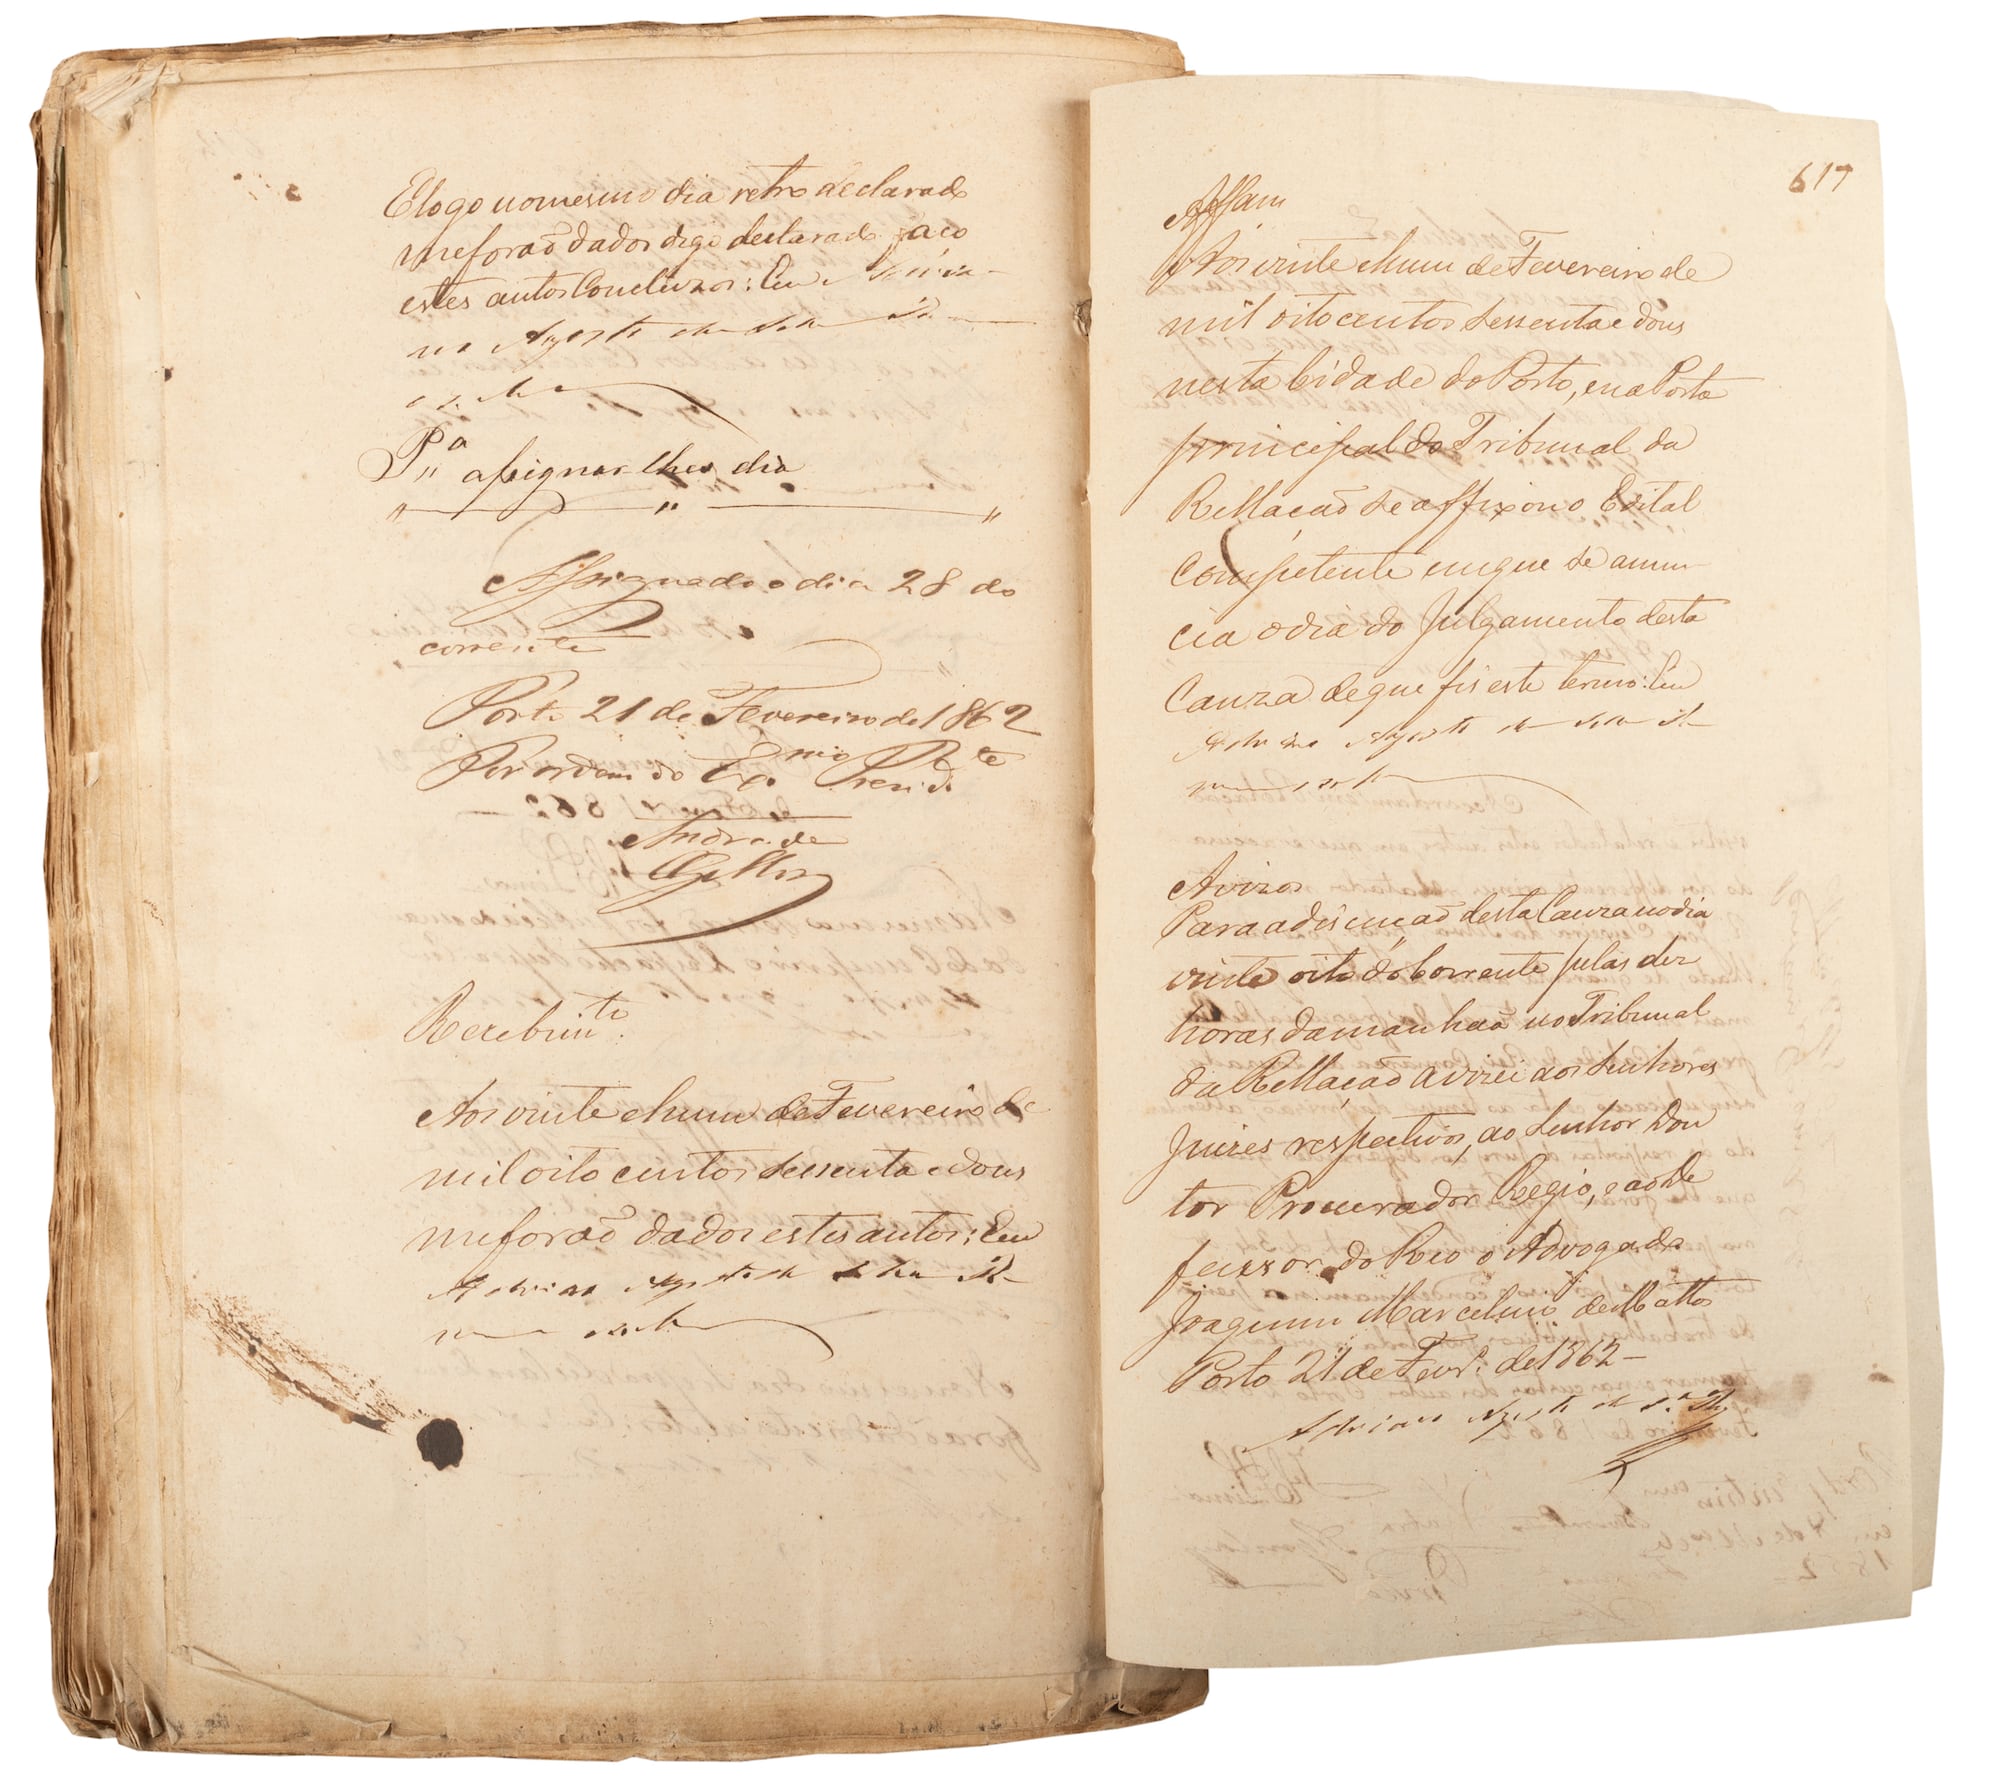 E logo no mesmo dia retro declarado
me forão dados digo declarado faço
estes autos Concluzos: Eu Adria-
no Agosto da Silva
Pª assignar lhes dia
Assignado o dia 28 do
corrente
Porto 21 de Fevereiro de 1862
Por ordem do Exmo Presidte
Andrade
Recebimto.
Aos vinte e hum de Fevereiro de
mil oito centos sessenta e dous
me forão dados estes autos: Eu
Adriano Agosto da Silva
617
Aos vinte e hum de Fevereiro de
mil oitocentos sessenta e dous
nesta Cidade do Porto, e na Porta
principal do Tribunal da
Rellação se affixou o Edital
Competente em que se annun-
cia o dia do Julgamento desta
Cauza de que fis este termo: Eu
Adriano Agosto da Silva
Avizos
Para a discução desta Cauza no dia
vinte oito do Corrente pelas dez
horas da manhãa no Tribunal
da Rellação avizei aos Senhores
Juizes respectivos, ao Senhor Dou
tor Procurador Regio, e ao De
fenssor do Reo o Advogado
Joaquim Marcelino de Mattos
Porto 21 de Fevrº. de 1862-
Adriano Agosto da Sª